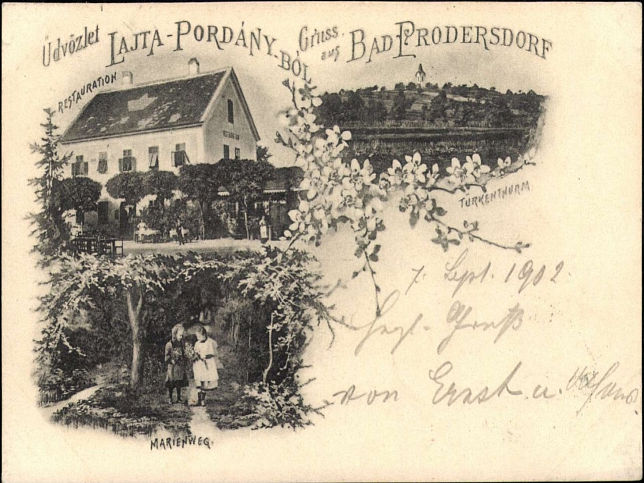 Üdvözlet LAJTA-PORDÁNY-BÓL
Gruss aus BAD PRODERSDORF
RESTAURATION
TÜRKENTHURM
7. Sept. 1902.
Hzl. Gruß
von Ernst u.
MARIENWEG.